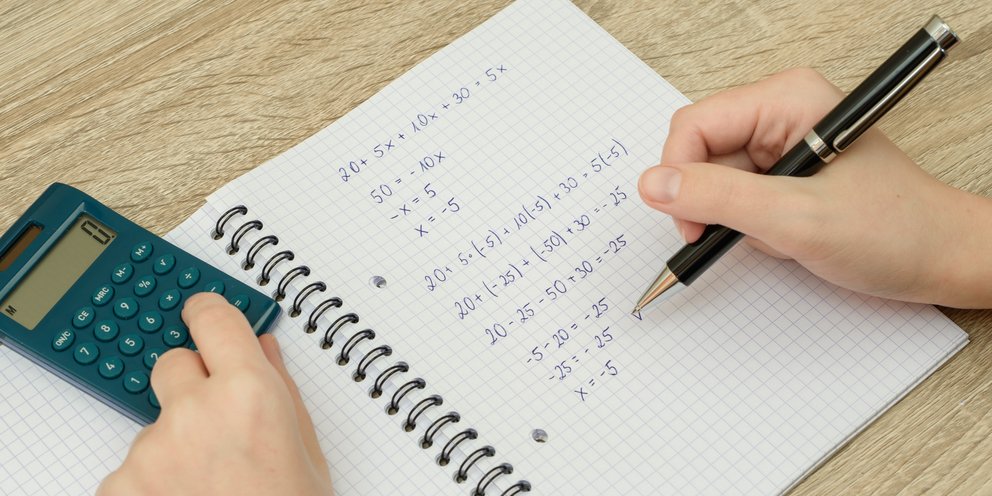 20 + 5x + 10x + 30 = 5x
50 = -10x
-x = 5
x = -5
20 + 5·(-5) + 10(-5) + 30 = 5(-5)
20 + (-25) + (-50) + 30 = -25
20 - 25 - 50 + 30 = -25
-5 - 20 = -25
-25 = -25
x = -5
0
M
M+
M-
√
MRC
%
÷
CE
9
×
ON/C
8
6
7
5
3
4
2
1